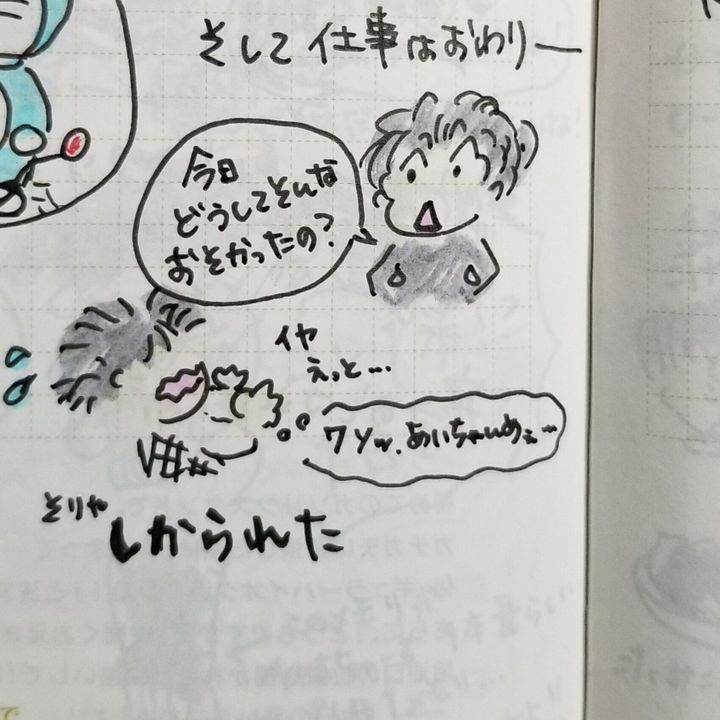 そして仕事はおわりー
今日
どうしてそんな
おそかったの?
イヤ
えっと…
クソッ、あいちゃんめぇー
そりゃ
しかられた